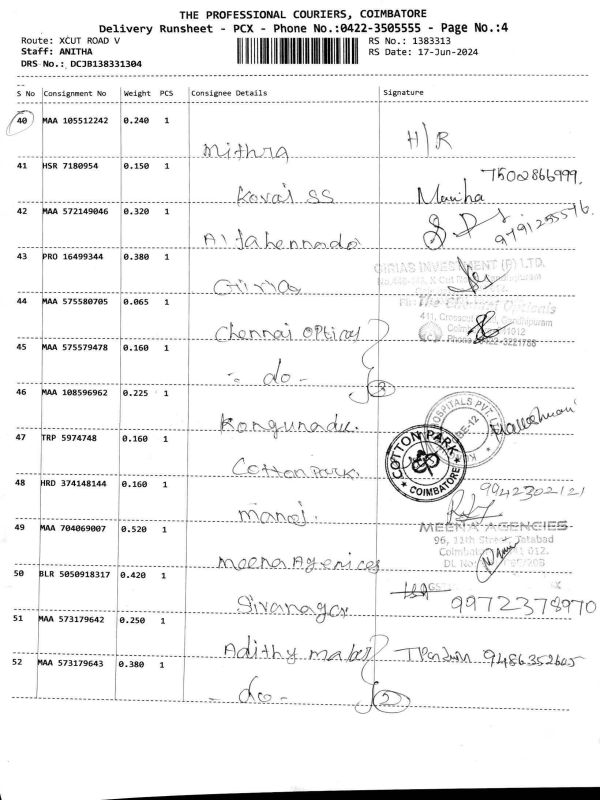 THE PROFESSIONAL COURIERS, COIMBATORE
Delivery Runsheet - PCX - Phone No.:0422-3505555 - Page No.:4
Route: XCUT ROAD V
RS No.: 1383313
Staff: ANITHA
RS Date: 17-Jun-2024
DRS No.: DCJB138331304
S No Consignment No Weight PCS Consignee Details Signature
40 MAA 105512242 0.240 1
Mithra H/R
41 HSR 7180954 0.150 1
7502866999.
Kovai SS
42 MAA 572149046 0.320 1
9791255576.
43 PRO 16499344 0.380 1
GIRIAS INVESTMENT (P) LTD.
44 MAA 575580705 0.065 1
411, Crosscut Gandhipuram
Chennai opticals
45 MAA 575579478 0.160 1
- do -
2
46 MAA 108596962 0.225 1
HOSPITALS PVT LTD
Kongunadu.
47 TRP 5974748 0.160 1
COTTON PARK
COIMBATORE
Cotton park.
48 HRD 374148144 0.160 1
9942302121
Manoj.
49 MAA 704069007 0.520 1
MEENA AGENCIES
96, 11th Street, Tatabad
Meena Agenices
50 BLR 5050918317 0.420 1
Sivanagar
9972378970
51 MAA 573179642 0.250 1
9486352605
52 MAA 573179643 0.380 1
- do -
2